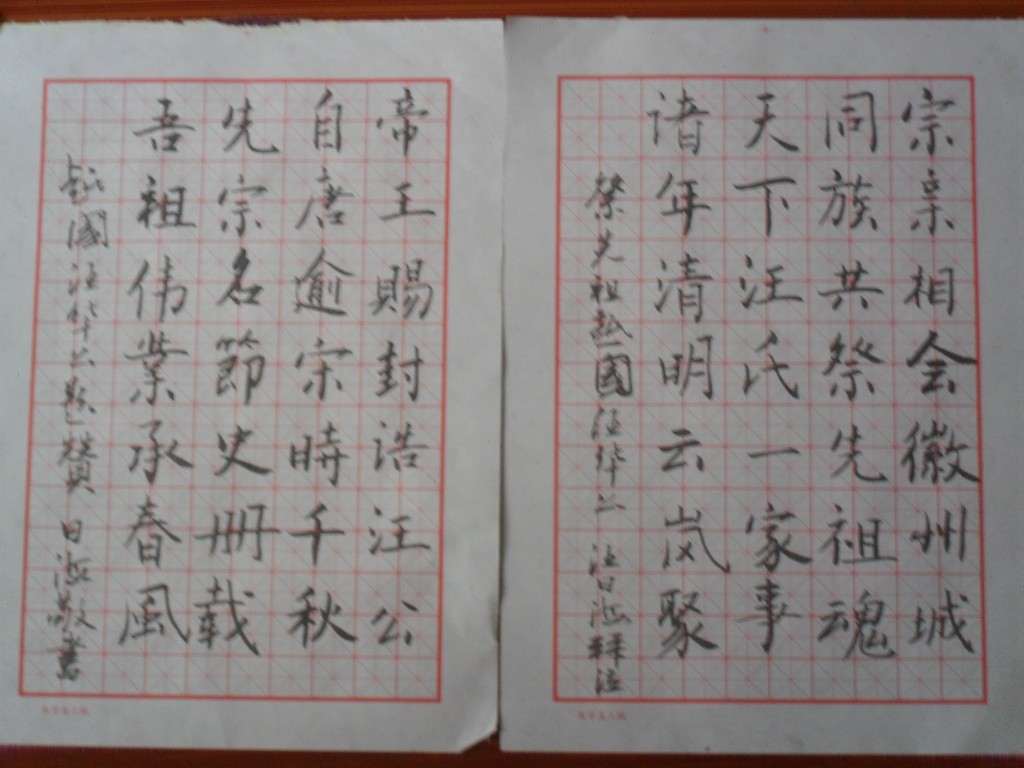 宗亲相会徽州城
同族共祭先祖魂
天下汪氏一家事
诸年清明云岚聚
祭先祖越國汪华公 汪日滋拜注
帝王賜封诰汪公
自唐逾宋時千秋
先宗名節史册載
吾祖伟業承春風
越國汪华公题赞 日滋敬書